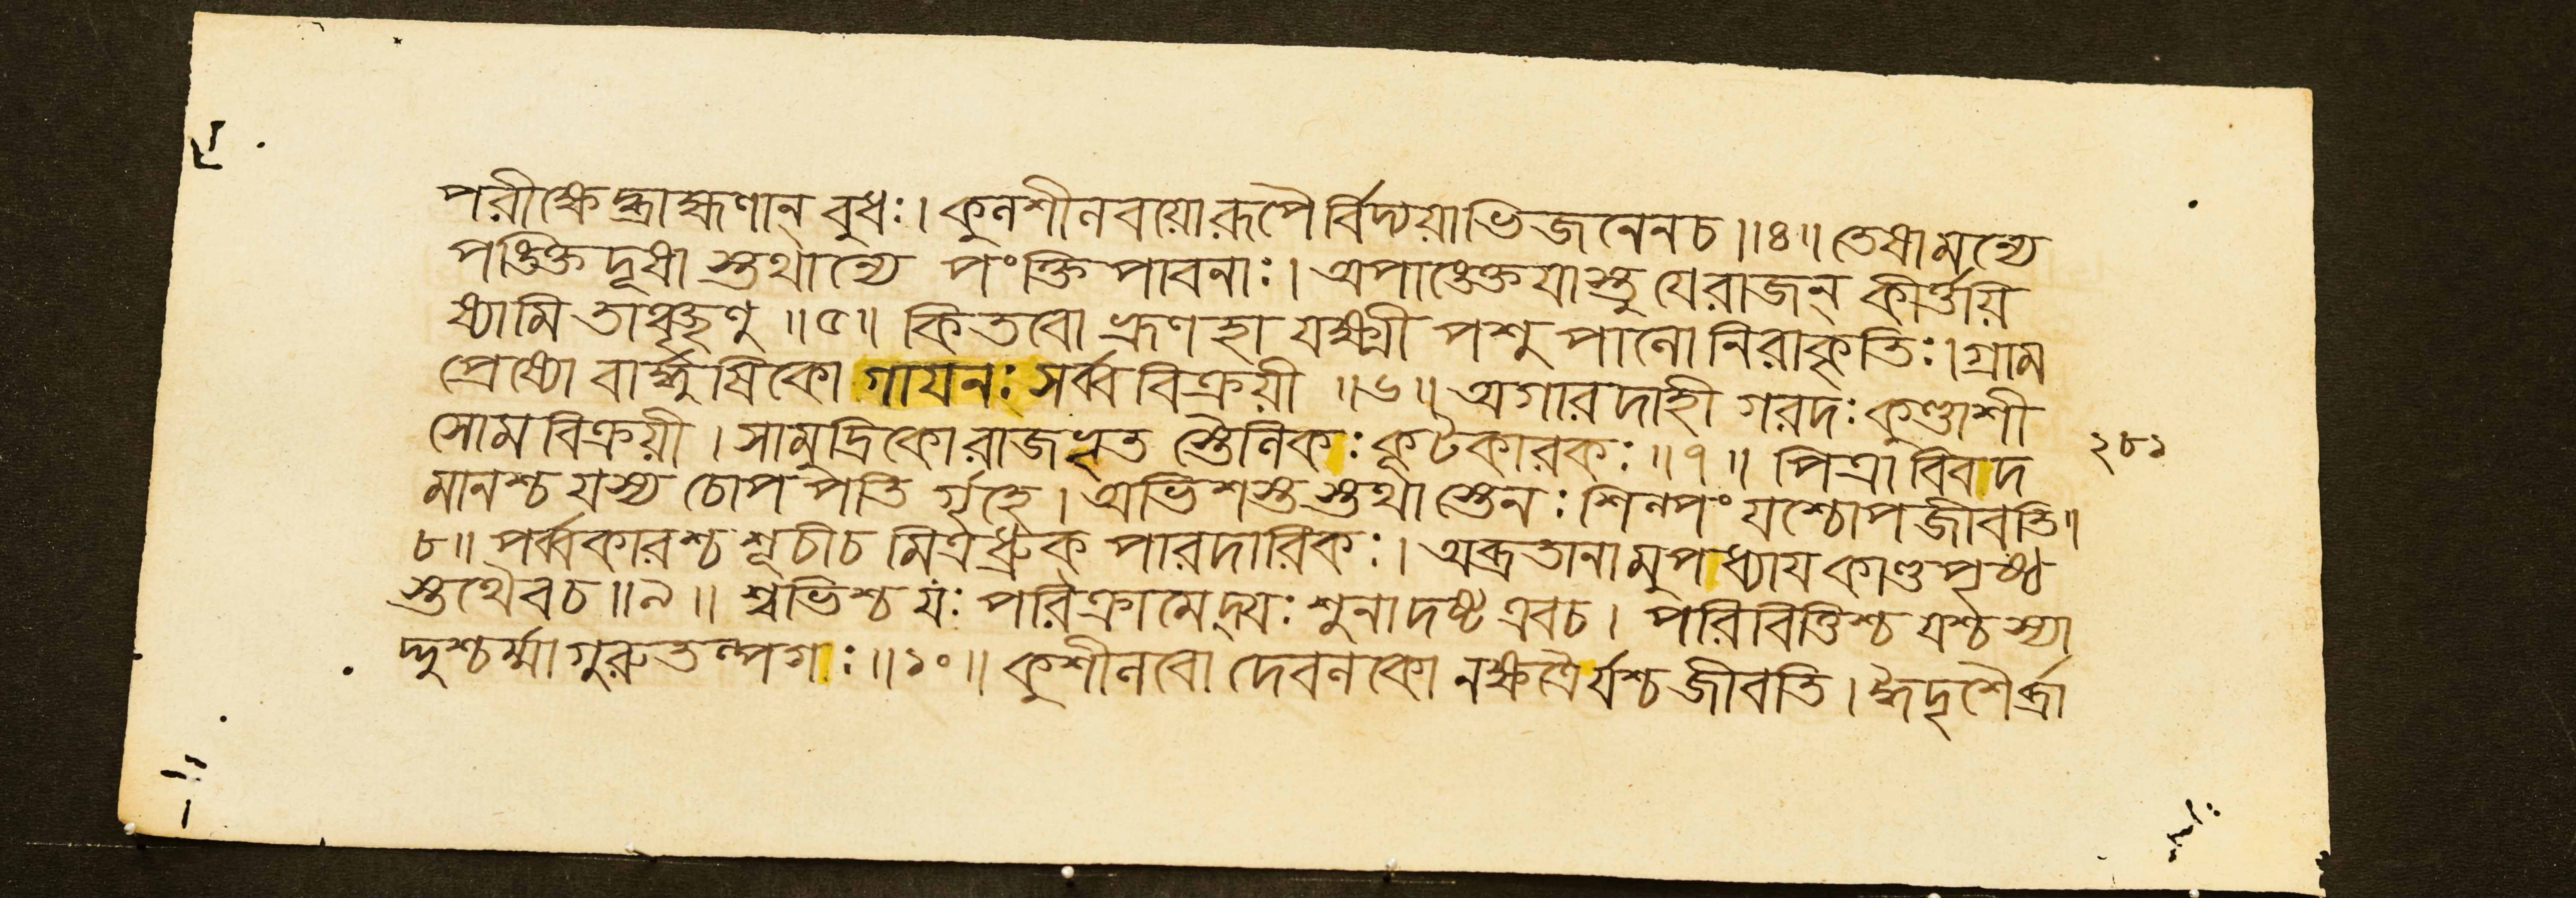 পরীক্ষেদ্ব্রাহ্মণান্ বুধঃ। কুলশীলবয়োরূপৈর্বিদ্যয়াভিজনেনচ॥৪॥ তেষামন্যে
পঙ্ক্তিদূষা স্তথান্যে পংক্তিপাবনাঃ। অপাঙ্ক্তেয়াস্তু যেরাজন্ কীর্ত্তয়ি
ষ্যামি তাঞ্ছৃণু ॥৫॥ কিতবো ভ্রূণহা যক্ষ্মী পশুপালো নিরাকৃতিঃ। গ্রাম
প্রেষ্যো বার্দ্ধুষিকো গায়নঃ সর্ব্ববিক্রয়ী ॥৬॥ অগারদাহী গরদঃ কুণ্ডাশী
সোমবিক্রয়ী। সামুদ্রিকো রাজভৃত স্তৈলিকঃ কূটকারকঃ ॥৭॥ পিত্রা বিবদ
২৮১
মানশ্চ যস্য চোপপতি র্গৃহে। অভিশস্তস্তথা স্তেনঃ শিল্পং যশ্চোপজীবতি॥
৮॥ পর্ব্বকারশ্চ শূচীচ মিত্রধ্রুক পারদারিকঃ। অব্রতানামুপধ্যায় কাণ্ডপৃষ্ঠ
স্তথৈবচ ॥৯॥ শ্বভিশ্চ যঃ পরিক্রামেদ্যঃ শুনাদষ্ট এবচ। পরিবিত্তিশ্চ যশ্চ স্যা
দ্দুশ্চর্ম্মা গুরুতল্পগঃ ॥১০॥ কুশীলবো দেবলকো নক্ষত্রৈর্যশ্চ জীবতি। ঈদৃশৈর্ব্রা